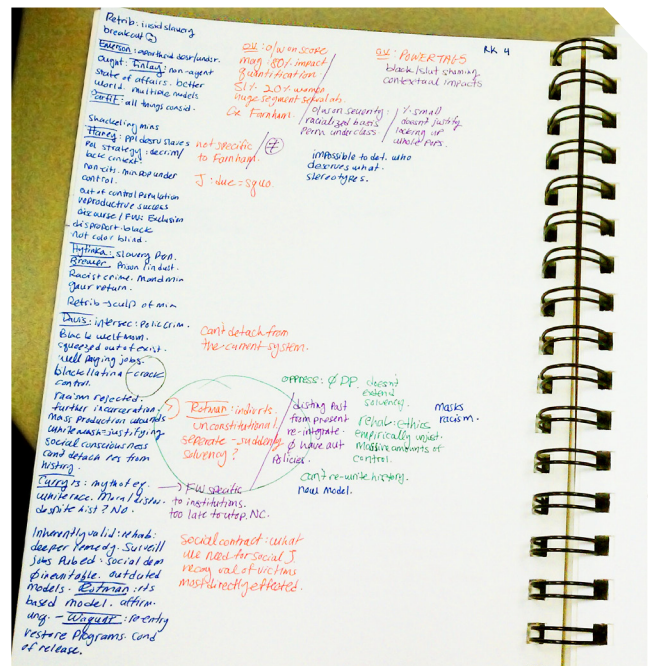 Retrib: insid slavery
breakout
Emerson: apartheid desr/under.
Ought: Finlay: non-agent
state of affairs. better
world. multiple models
all things consid.
Shackeling mins
Haney: ppl desrv slaves
Pol strategy: decrim/
lack consent.
non-cits. min pop under
control.
out of control population
reproductive success
Discourse/FW: Exclusion
disproport. black
not color blind.
slavery
Brewer: Prison/indust.
Racist crime. mand min
return.
Retrib → sculp of min
Davis: intersec: polic crim.
Black welf mom.
squeezed out of exist.
well paying jobs.
black/latina - crack
control.
racism rejected.
further incarceration.
mass production wounds
whitewash - justifying
social consciousness
cant detach res from
history.
Curry is: myth of
white race. Moral
despite hist? No.
Inherently valid: rehab:
deeper remedy. Surveill
jobs Pub ed: social dem
Ø inevitable. outdated
models - Rotman: rts
based model. affirm.
ung. - Waquant: re-entry
restore programs. Cond
of release.
OV: o/w on score
mag: 80% impact
quantification
51% 20% women
huge segment
Farnham.
not specific
to Farnham.
≠
J: due = squo.
o/w on severity:
racialized basis
perm underclass
% small
doesn't justify
locking up
whole pers.
OV: POWERTAGS
black/slut shaming
contextual impacts
RK 4
impossible to det. who
deserves what.
stereotypes.
Can't detach from
the current system.
Rotman: indiv rts.
unconstitutional.
generate - suddenly
solvency?
→ FW specific
to institutions.
too late to utop. NC.
oppress: Ø DP. doesn't
extend
solvency.
disting past
from present
re-integrate
Ø have aut
policies.
rehab: Ethics
empirically unjust.
Massive amounts of
control.
masks
racism.
can't re-write history.
neut model.
Social contract: what
we need for social J.
recog val of victims
most directly effected.